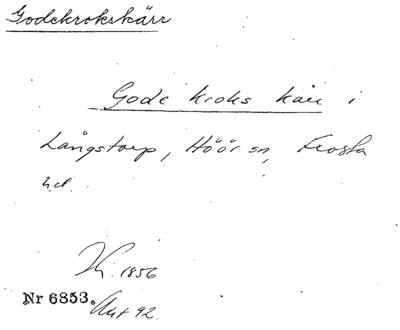 Godekrokskärr
Gode kroks kärr i
Långstorp, Höör sn, Frosta
hd.
1856
Nr 6853.
Akt 92